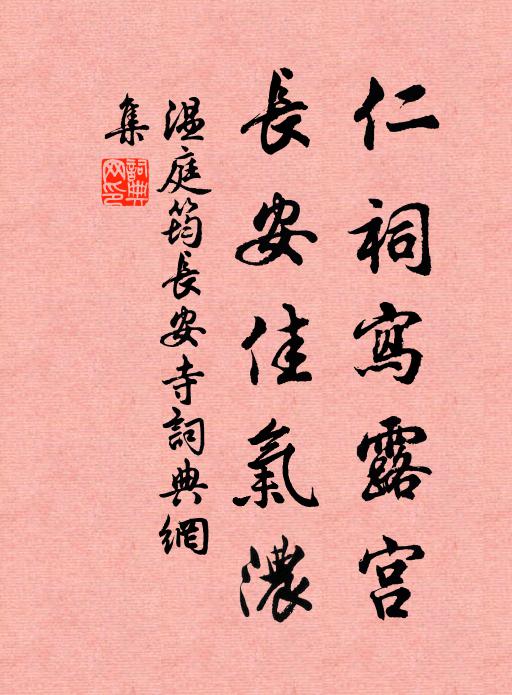 仁祠寫露宮
長安佳氣濃
溫庭筠長安寺詞典網
集
詞典網印